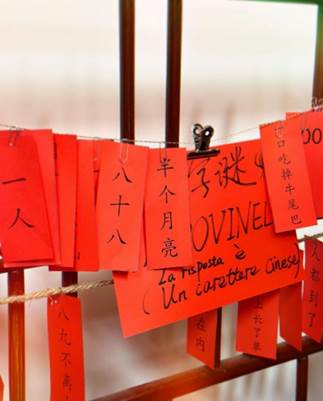 一人
八十八
半个月亮
字谜
OVINEL
è
La risposta
(Un carattere cinese
口吃掉牛尾巴
八九不离
上长了
人都到了